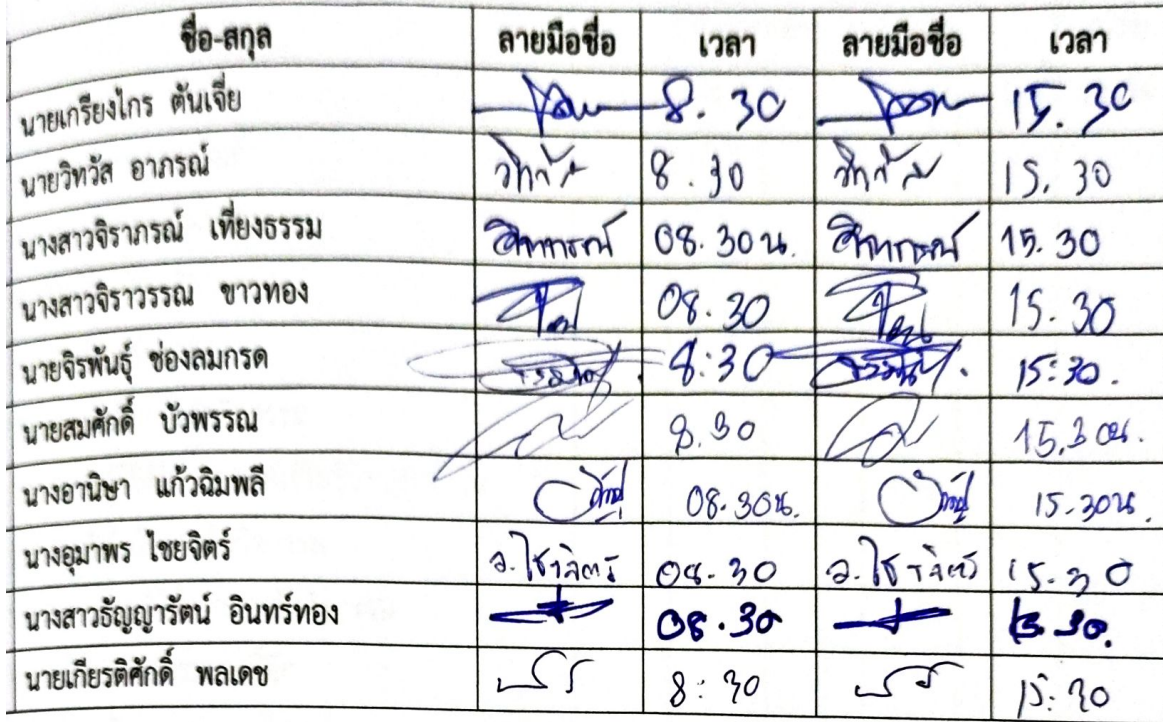 ชื่อ-สกุล ลายมือชื่อ เวลา ลายมือชื่อ เวลา
นายเกรียงไกร ตันเจี่ย 8.30 15.30
นายวิทวัส อาภรณ์ วิทวัส 8.30 วิทวัส 15.30
นางสาวจิราภรณ์ เที่ยงธรรม จิราภรณ์ 08.30น. จิราภรณ์ 15.30
นางสาวจิราวรรณ ขาวทอง 08.30 15.30
นายจิรพันธุ์ ช่องลมกรด 8:30 15:30.
นายสมศักดิ์ บัวพรรณ 8.30 15.30น.
นางอานิษา แก้วฉิมพลี 08.30น. 15.30น.
นางอุมาพร ไชยจิตร์ อ.ไชยจิตร์ 08.30 อ.ไชยจิตร์ 15.30
นางสาวธัญญารัตน์ อินทร์ทอง 08.30 15.30.
นายเกียรติศักดิ์ พลเดช 8:30 15:30